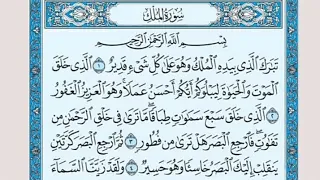 سُورَةُ المُلْكِ
بِسْمِ اللَّهِ الرَّحْمَٰنِ الرَّحِيمِ
تَبَٰرَكَ الَّذِي بِيَدِهِ الْمُلْكُ وَهُوَ عَلَىٰ كُلِّ شَيْءٍ قَدِيرٌ ١ الَّذِي خَلَقَ
الْمَوْتَ وَالْحَيَوٰةَ لِيَبْلُوَكُمْ أَيُّكُمْ أَحْسَنُ عَمَلًا وَهُوَ الْعَزِيزُ الْغَفُورُ
٢ الَّذِي خَلَقَ سَبْعَ سَمَٰوَٰتٍ طِبَاقًا مَّا تَرَىٰ فِي خَلْقِ الرَّحْمَٰنِ مِن
تَفَٰوُتٍ فَارْجِعِ الْبَصَرَ هَلْ تَرَىٰ مِن فُطُورٍ ٣ ثُمَّ ارْجِعِ الْبَصَرَ كَرَّتَيْنِ
يَنقَلِبْ إِلَيْكَ الْبَصَرُ خَاسِئًا وَهُوَ حَسِيرٌ ٤ وَلَقَدْ زَيَّنَّا السَّمَآءَ